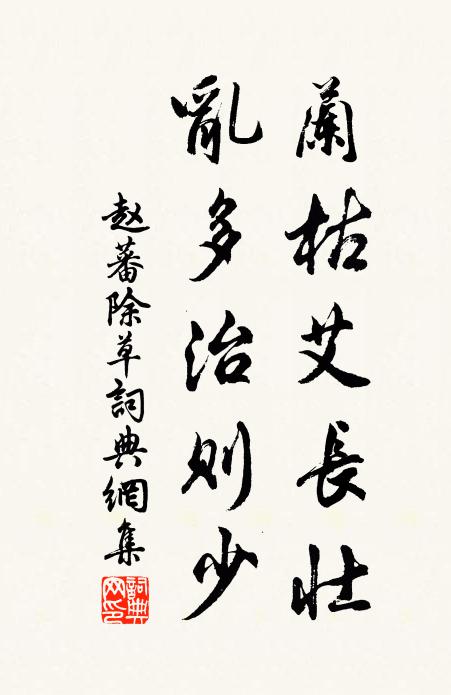 蘭枯艾長壯
亂多治則少
赵蕃除草詞典網集
詞典網印